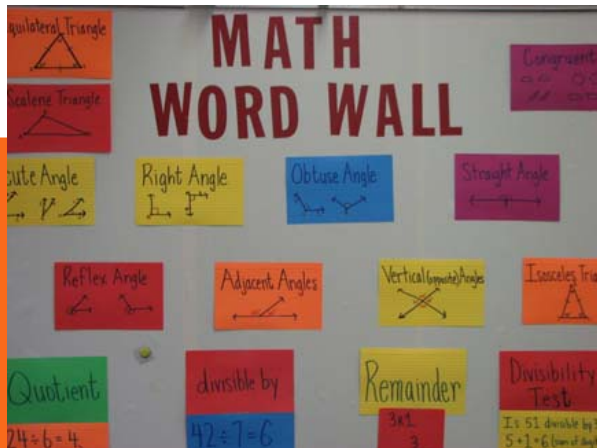 Equilateral Triangle
MATH
WORD WALL
Congruent
Scalene Triangle
Acute Angle
Right Angle
Obtuse Angle
Straight Angle
Reflex Angle
Adjacent Angles
Vertical (opposite) Angles
Isosceles Tria
Quotient
24÷6=4
divisible by
42÷7=6
Remainder
3
Divisibility
Test
Is 51 divisible by 3
5+1=6 (sum of digits